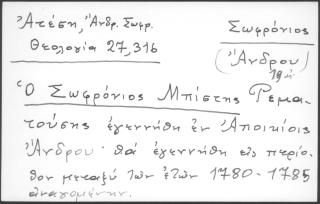 Ἀτέση, Ἀνδρ. Σωφρ.
Θεολογία 27,316
Σωφρόνιος
(Ἄνδρου)
19 αἰ.
Ὁ Σωφρόνιος Μπίστης Ρεμα-
τούσης ἐγεννήθη ἐν Ἀποικίοις
Ἄνδρου· θὰ ἐγεννήθη εἰς περίο-
δον μεταξὺ τῶν ἐτῶν 1780-1785